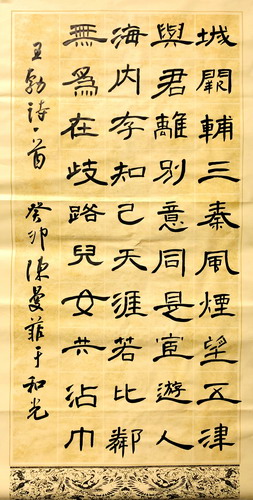 城闕輔三秦風煙望五津
與君離別意同是宦遊人
海内存知己天涯若比鄰
無為在歧路兒女共沾巾
王勃詩一首 癸卯陳曼菲于和光